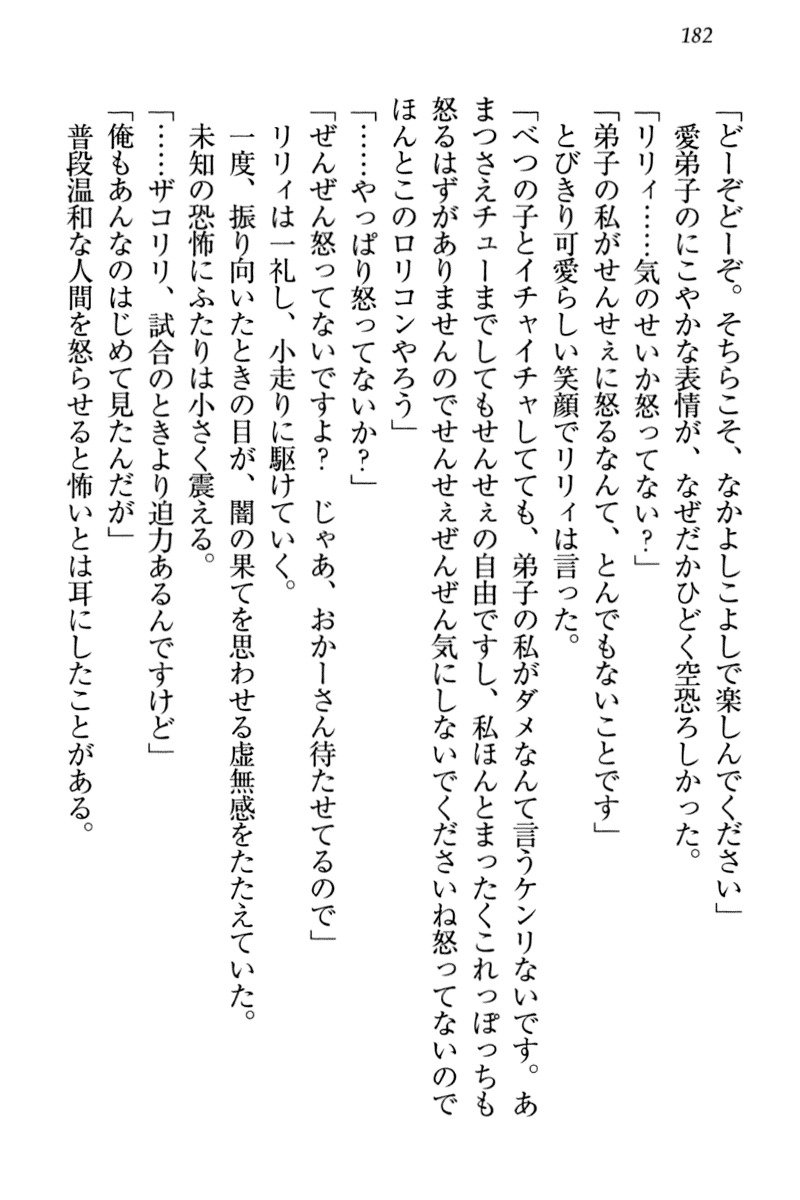 182
「どーぞどーぞ。そちらこそ、なかよしこよしで楽しんでください」
愛弟子のにこやかな表情が、なぜだかひどく空恐ろしかった。
「リリィ……気のせいか怒ってない？」
「弟子の私がせんせぇに怒るなんて、とんでもないことです」
とびきり可愛らしい笑顔でリリィは言った。
「べつの子とイチャイチャしてても、弟子の私がダメなんて言うケンリないです。あ
まつさえチューまでしてもせんせぇの自由ですし、私ほんとまったくこれっぽっちも
怒るはずがありませんのでせんせぇぜんぜん気にしないでくださいね怒ってないので
ほんとこのロリコンやろう」
「……やっぱり怒ってないか？」
「ぜんぜん怒ってないですよ？　じゃあ、おかーさん待たせてるので」
リリィは一礼し、小走りに駆けていく。
一度、振り向いたときの目が、闇の果てを思わせる虚無感をたたえていた。
未知の恐怖にふたりは小さく震える。
「……ザコリリ、試合のときより迫力あるんですけど」
「俺もあんなのはじめて見たんだが」
普段温和な人間を怒らせると怖いとは耳にしたことがある。